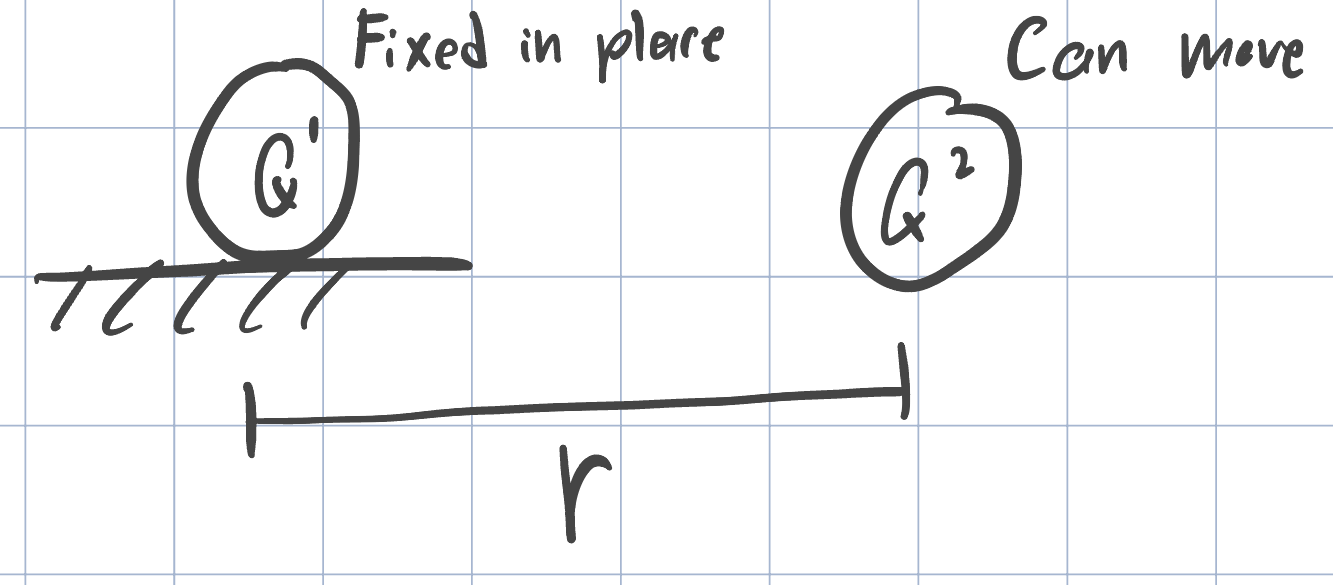 Fixed in place
Can move
Q¹
Q²
r